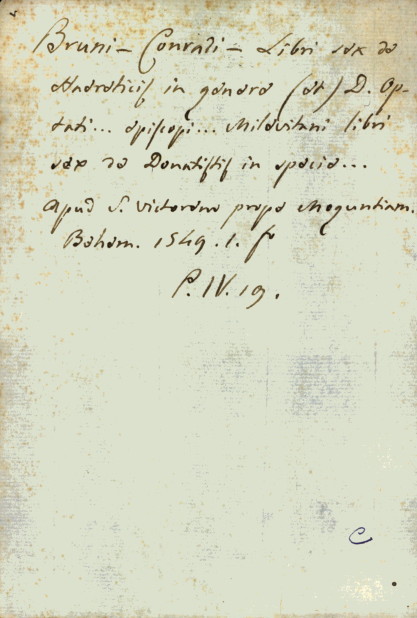 Bruni - Conradi - Libri sex de
Haereticis in genere (et) D. Op-
tati... episcopi... Milevitani libri
sex de Donatistis in specie...
Apud S. Victorem prope Moguntiam.
Behem. 1549. 1. f°
P. IV. 19.
C